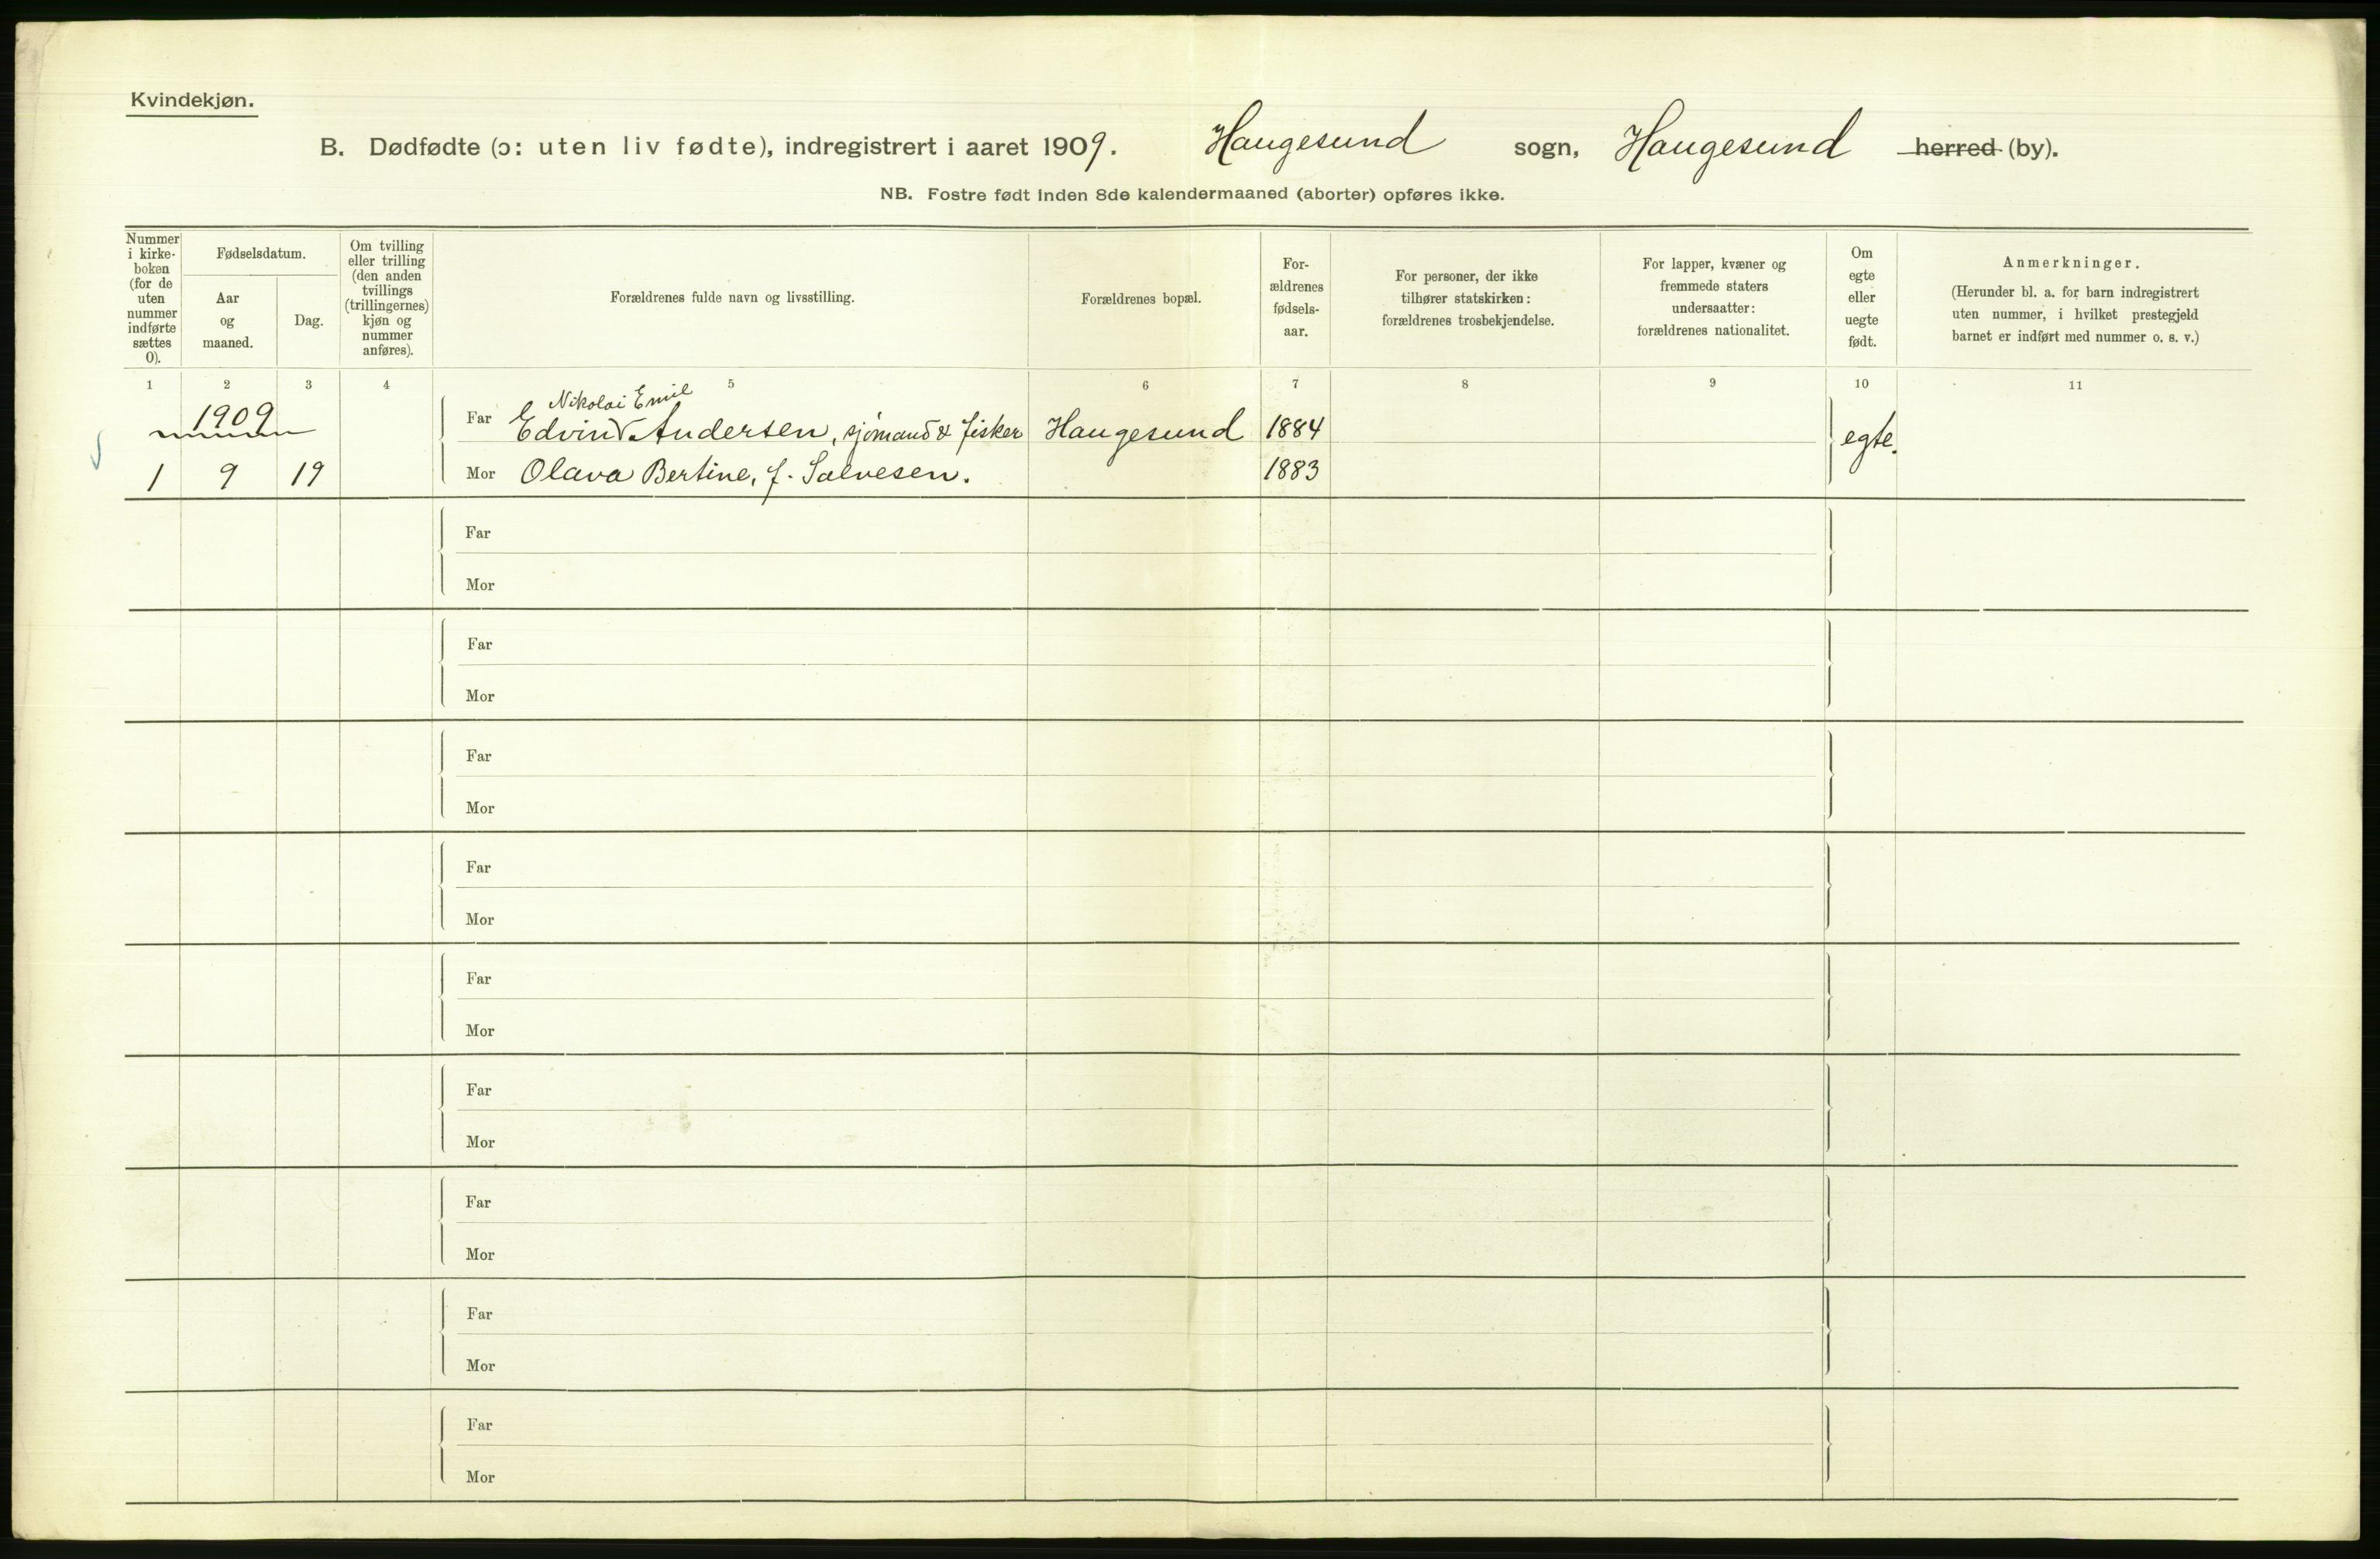 Kvindekjøn.
B. Dødfødte (ɔ: uten liv fødte), indregistrert i aaret 1909. Haugesund sogn, Haugesund herred (by).
NB. Fostre født inden 8de kalendermaaned (aborter) opføres ikke.
Nummer i kirke-boken (for de uten nummer indførte sættes 0).
Fødselsdatum.
Aar og maaned.
Dag.
Om tvilling eller trilling (den anden tvillings (trillingernes) kjøn og nummer anføres).
Forældrenes fulde navn og livsstilling.
Forældrenes bopæl.
For-ældrenes fødsels-aar.
For personer, der ikke tilhører statskirken: forældrenes trosbekjendelse.
For lapper, kvæner og fremmede staters undersaatter: forældrenes nationalitet.
Om egte eller uegte født.
Anmerkninger.
(Herunder bl. a. for barn indregistrert uten nummer, i hvilket prestegjeld barnet er indført med nummer o. s. v.)
1 2 3 4 5 6 7 8 9 10 11
1909
Nikolai Emil
Far Edvin Andersen, sjømand & fisker Haugesund 1884 egte.
1 9 19 Mor Olava Bertine, f. Salvesen. 1883
Far
Mor
Far
Mor
Far
Mor
Far
Mor
Far
Mor
Far
Mor
Far
Mor
Far
Mor
Far
Mor